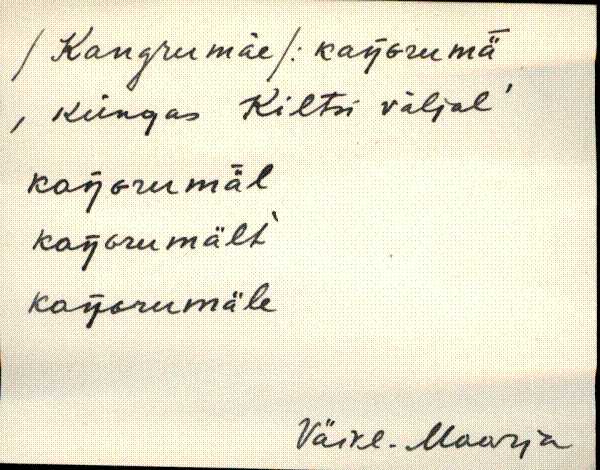 /Kangrumäe/: kaŋɢrumǟ
, küngas Kiltsi väljal'
kaŋɢrumǟl
kaŋɢrumält`
kaŋɢrumäle
Väike-Maarja